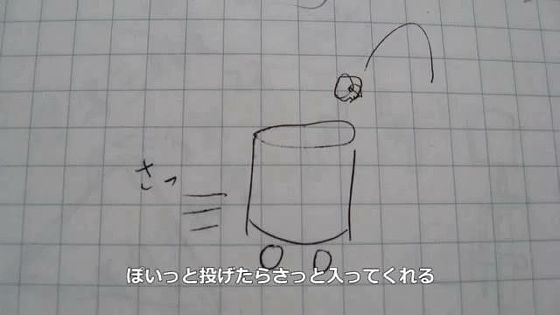 さっ
ほいっと投げたらさっと入ってくれる